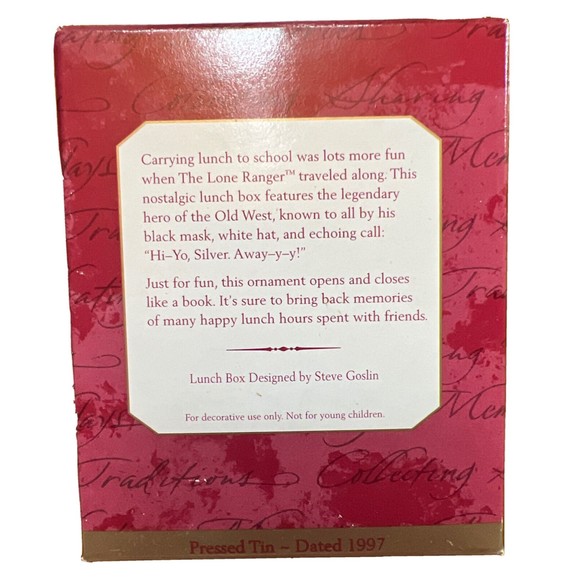 Tra
Sharing
Carrying lunch to school was lots more fun
when The Lone Ranger™ traveled along. This
nostalgic lunch box features the legendary
hero of the Old West, known to all by his
black mask, white hat, and echoing call:
“Hi–Yo, Silver. Away–y–y!”
Just for fun, this ornament opens and closes
like a book. It's sure to bring back memories
of many happy lunch hours spent with friends.
Lunch Box Designed by Steve Goslin
For decorative use only. Not for young children.
Traditions Collecting
Pressed Tin – Dated 1997